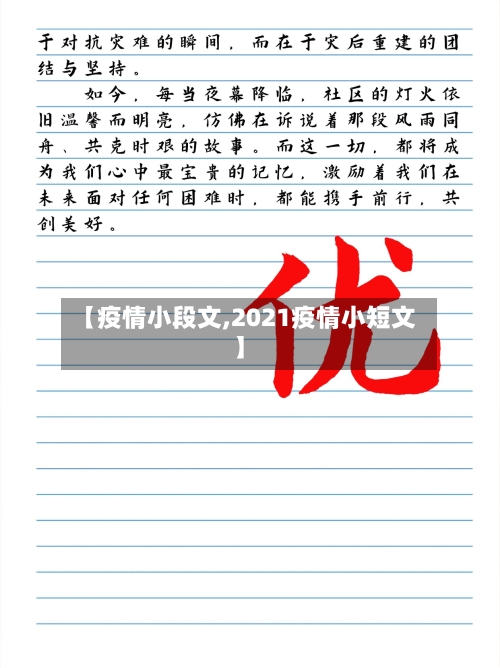 于对抗灾难的瞬间，而在于灾后重建的团
结与坚持。
如今，每当夜幕降临，社区的灯火依
旧温馨而明亮，仿佛在诉说着那段风雨同
舟、共克时艰的故事。而这一切，都将成
为我们心中最宝贵的记忆，激励着我们在
未来面对任何困难时，都能携手前行，共
创美好。
优
【疫情小段文,2021疫情小短文
】